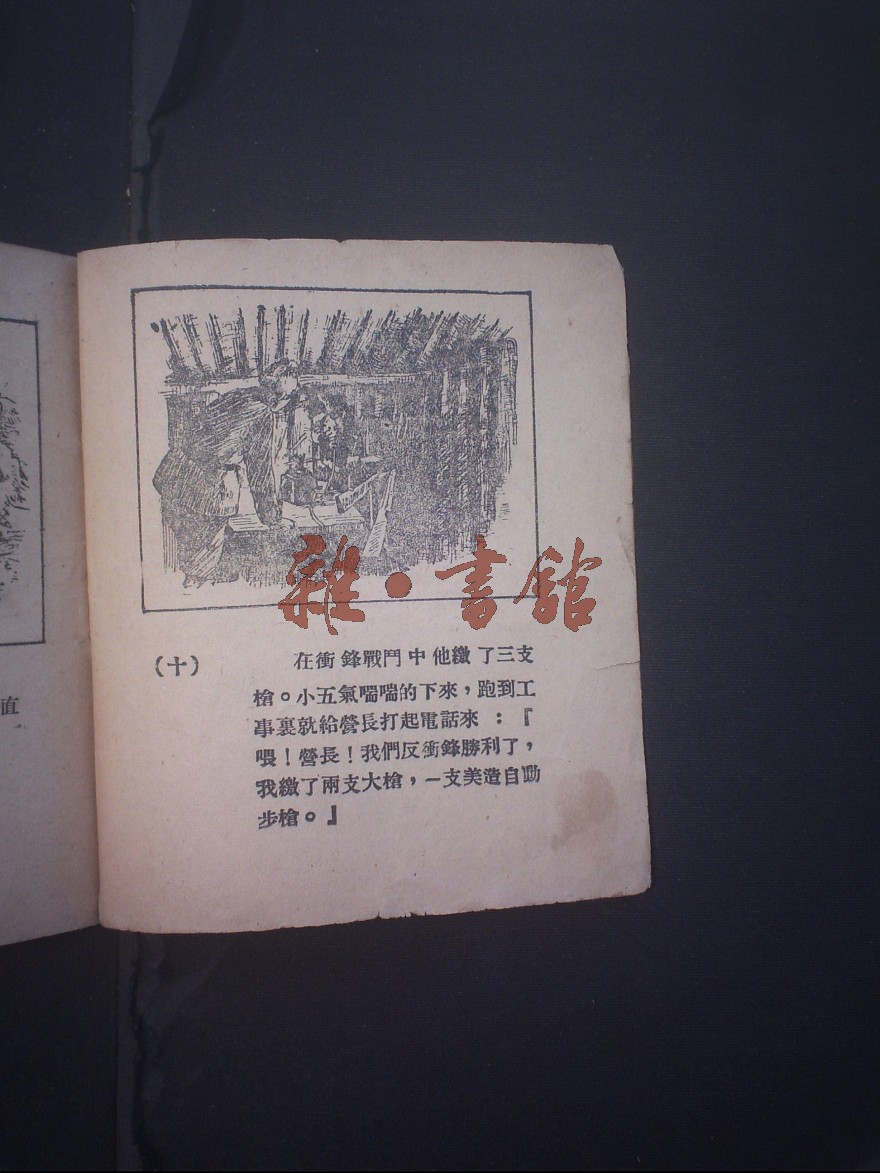 雜·書舘
(十)
在衝鋒戰鬥中他繳了三支
槍。小五氣喘喘的下來,跑到工
事裏就給營長打起電話來:『
喂!營長!我們反衝鋒勝利了,
我繳了兩支大槍,一支美造自動
步槍。』
直